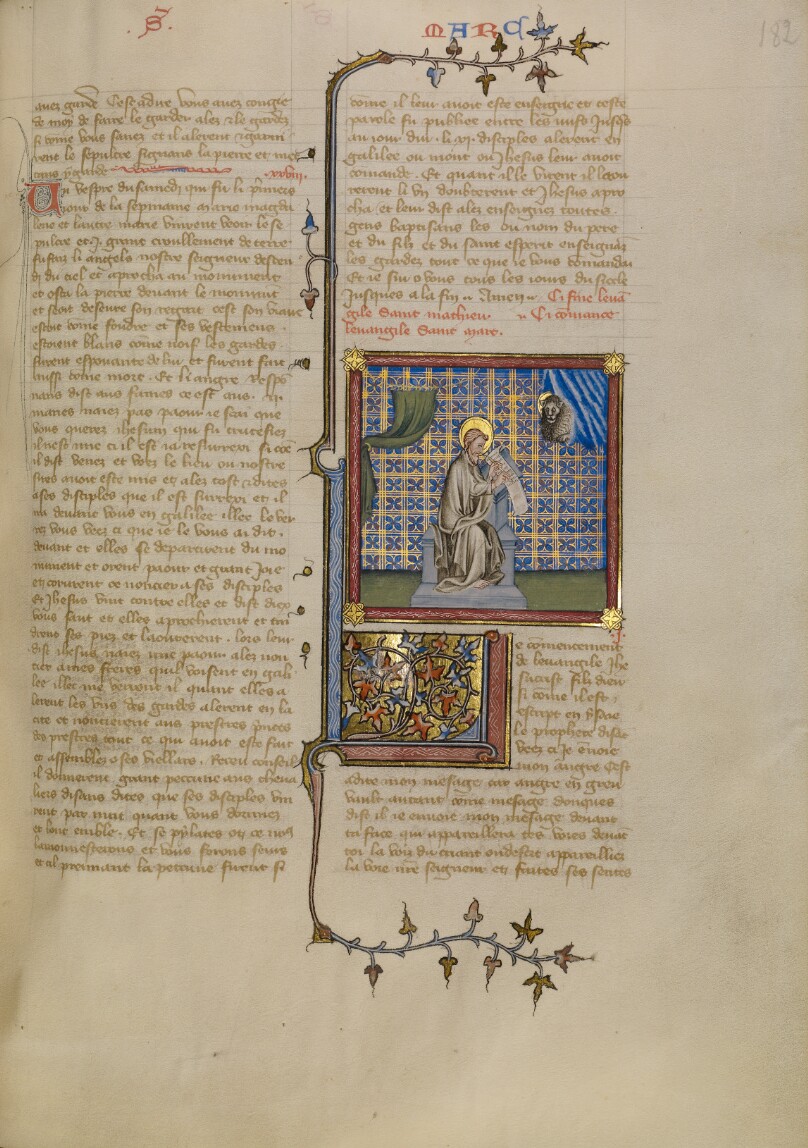 S
MARC
182
auez garde Cest adire vous auez congie
de moy de faire le garder alez & le gardez
si come vous sauez et il alerent & garni
rent le sepulcre signans la pierre et
xxviii
Au vespre du samedi qui fu li primiers
iours de la sepmaine marie magda
lene et lautre marie vindrent veoir le se
pulcre et grant croullement de terre
fu fait li angels nostre seigneur descen
di du ciel et aprocha au monument
et osta la pierre deuant le monument
et seoit desseure son regart cest son viaire
estoit come foudre et ses vestemens
estoient blans come noif les gardes
furent espouante de lui et furent fait
aussi come mort Et li angre respo
nans dist aus femes cest ans
maries naiez pas paour ie scai que
vous querez ihesum qui fu crucefiez
il nest mie ci il est ia resurrexi si coe
il dist venez et veez le lieu ou nostre
sires auoit este mis et alez tost & dites
a ses disciples que il est surrexi et il
ira deuant vous en galilee illec le ver
rez vous veez ci que ie le vous ai dit
deuant et elles se departirent du mo
nument et orent paour et grant Joie
en corurent ce noncier a ses disciples
Et Jhesus vint contre elles et dist diex
vous saut et elles aprochierent et tin
drent ses piez et laourerent lors leur
dist ihesus naiez mie paour alez non
cier a mes freres quil voisent en gali
lee illec me verront il quant elles a
lerent les vns des gardes alerent en la
cite et noncierent aus prestres princes
des prestres tout ce qui auoit este fait
et assemblez o ses viellars Receu conseil
il donnerent grant peccune aus cheua
liers disans dites que ses disciples vin
rent par nuit quant vous dormiez
et lont emble Et se pylates ot ce nous
lamonnesterons et vous ferons seurs
et il prennant la peccune firent si
come il leur auoit este enseigne et ceste
parole fu publiee entre les iuifs Jusqs
au iour dui li xi disciples alerent en
galilee ou mont ou Jhesus leur auoit
comande Et quant il le virent il laou
rerent li vn doubterent et Jhesus apro
cha et leur dist alez enseigniez toutes
gens baptisans les ou nom du pere
et du filz et du saint esperit enseignaz
les gardez tout ce que ie vous comandai
Et ie sui o vous tous les iours du siecle
Jusques a la fin Amen Ci fine leua
gile Saint mathieu Ci comance
leuangile Saint marc
Le comencement
de leuangile Jhe
sucrist filz dieu
si come il est
escript en ysaie
le prophete
veez ci Je enuoie
mon angre Cest
adire mon mesage car angre en grieu
vault autant come mesage donques
dist il ie enuoie mon mesage deuant
ta face qui appareillera tes voies deuat
toi la voiz du criant ou desert appareilliez
la voie nre seigneur et faites ses sentes